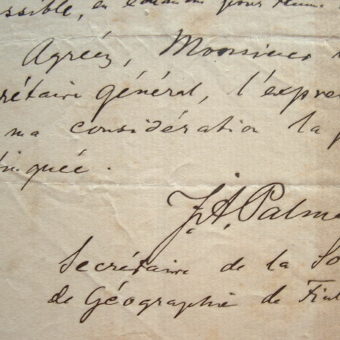 ssible, en
Agréez, Monsieur
crétaire général, l'expre
ma considération la
inguée.
J. A. Palm
Secrétaire de la So
de Géographie de Finl